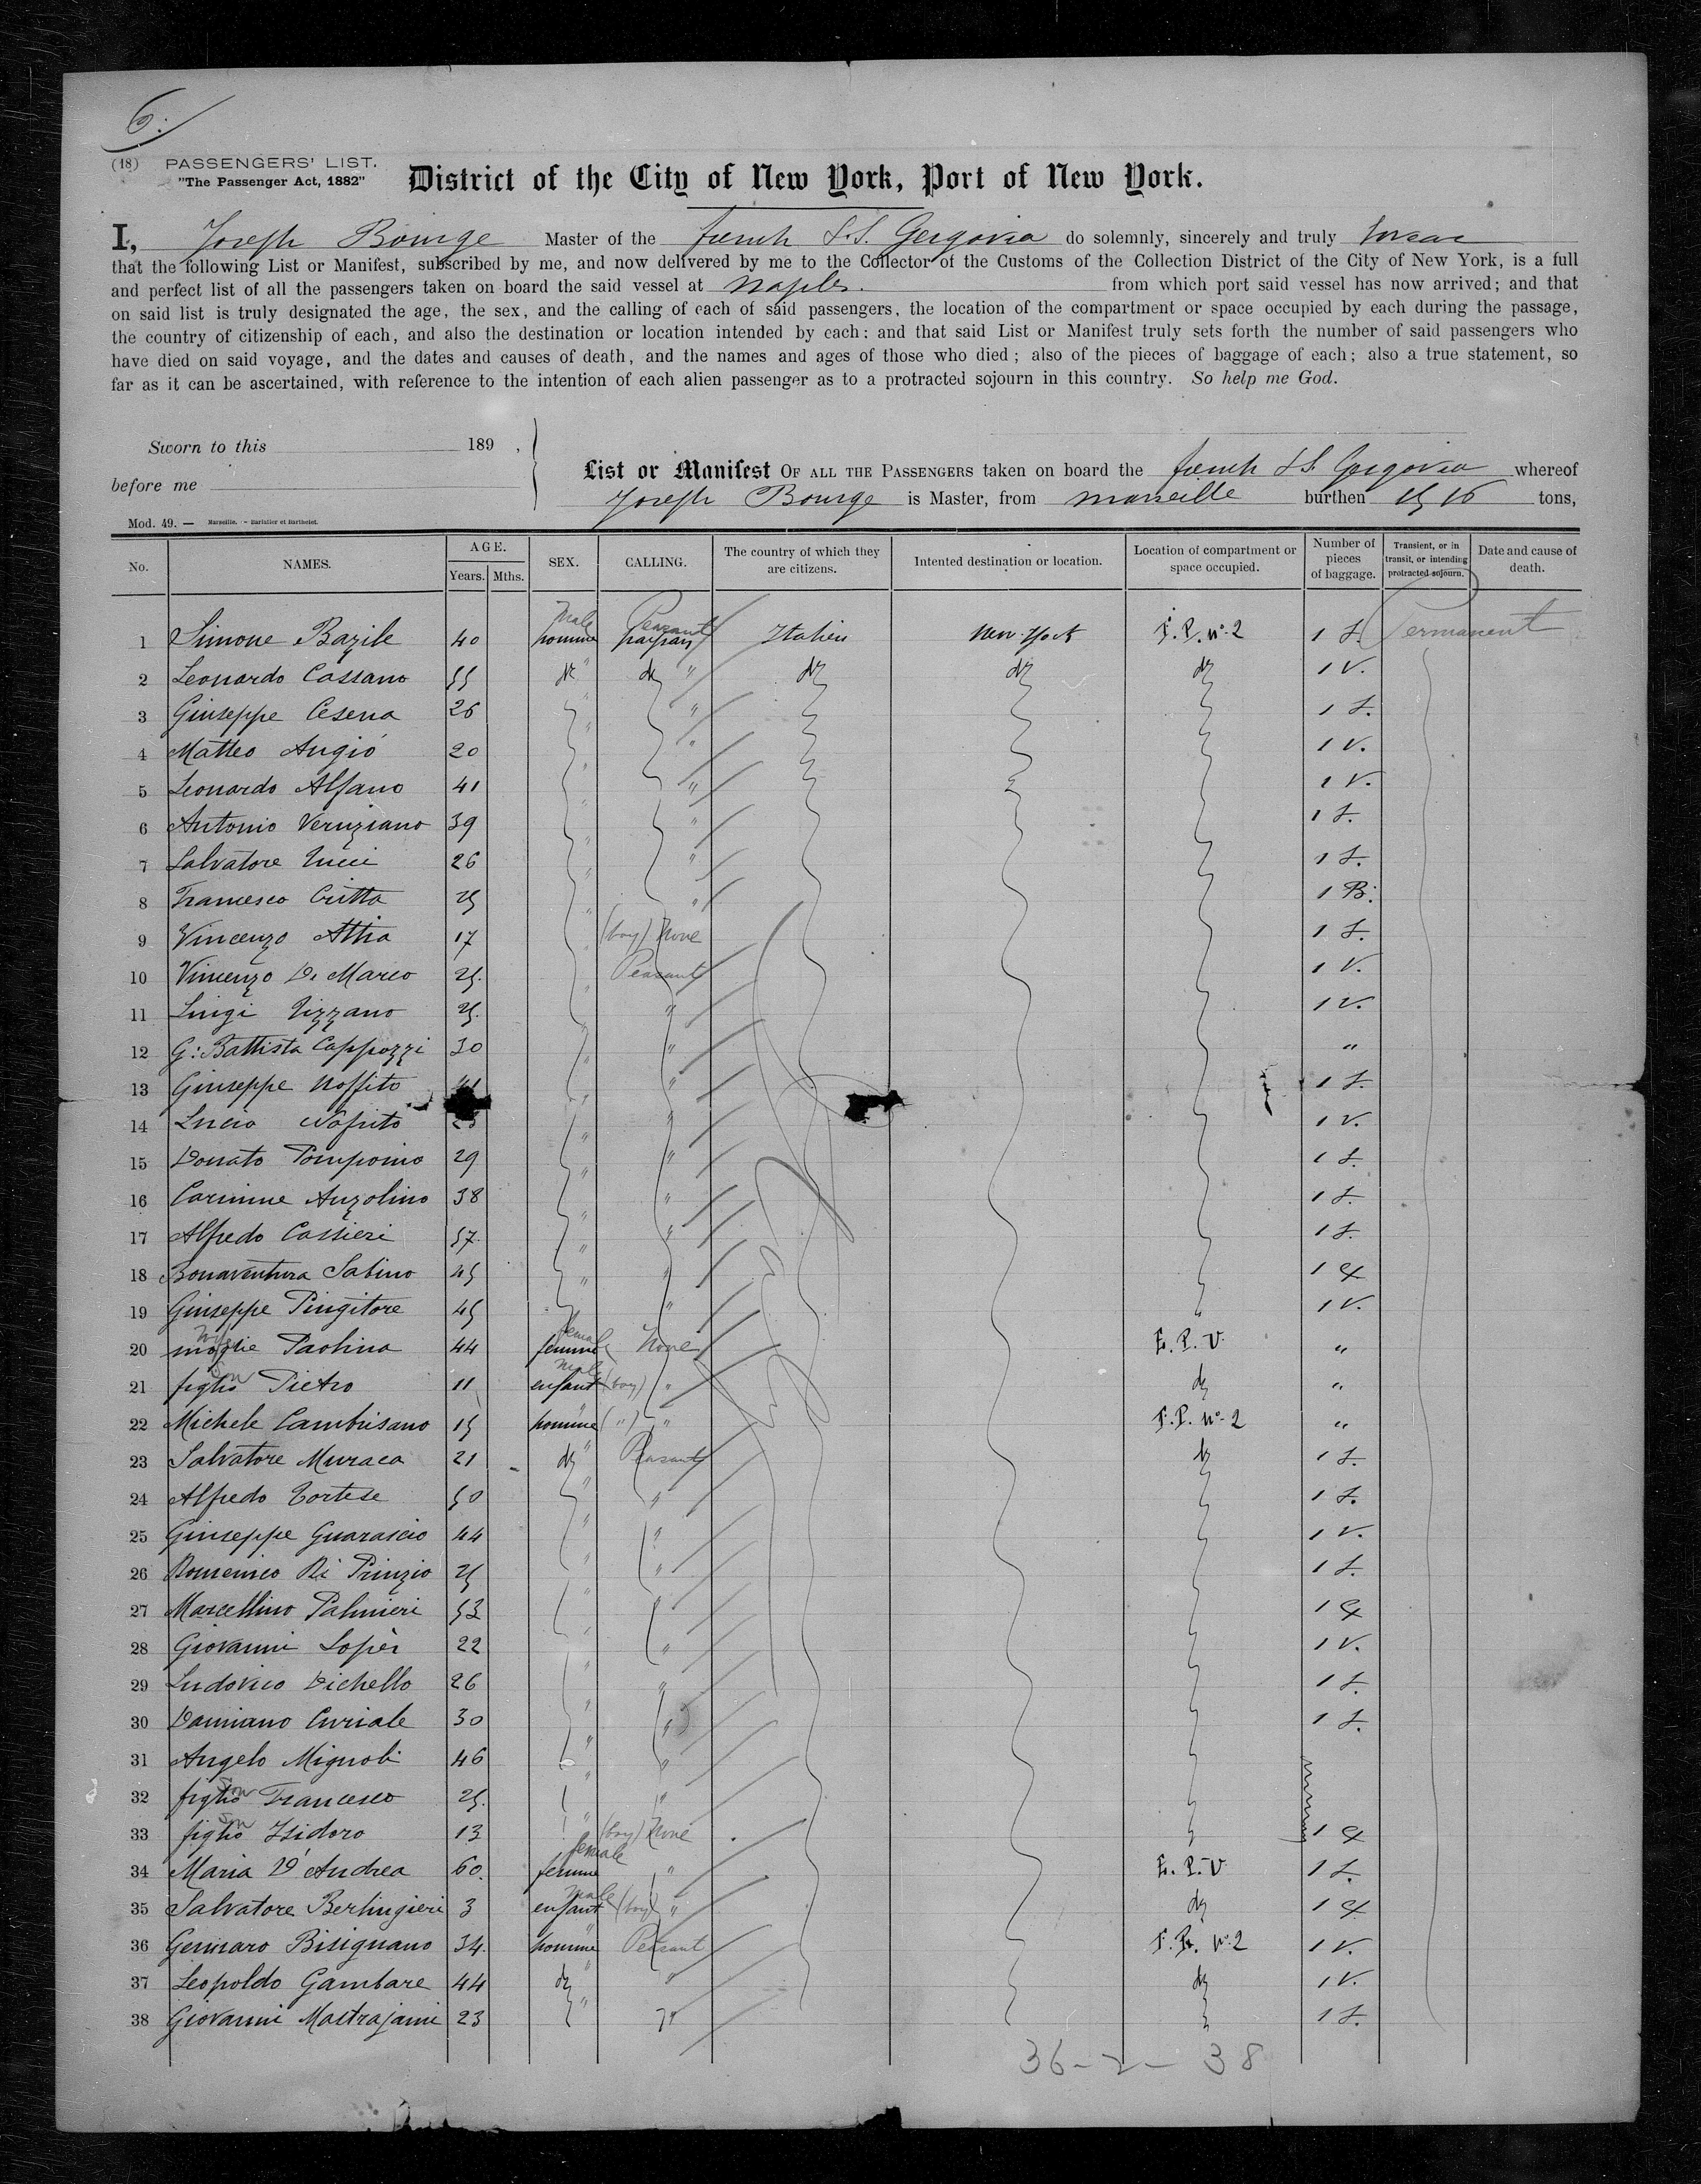 6:
(18) PASSENGERS' LIST.
"The Passenger Act, 1882"
District of the City of New York, Port of New York.
I, Joseph Bourge Master of the french S.S. Gergovia do solemnly, sincerely and truly swear
that the following List or Manifest, subscribed by me, and now delivered by me to the Collector of the Customs of the Collection District of the City of New York, is a full
and perfect list of all the passengers taken on board the said vessel at Naples. from which port said vessel has now arrived; and that
on said list is truly designated the age, the sex, and the calling of each of said passengers, the location of the compartment or space occupied by each during the passage,
the country of citizenship of each, and also the destination or location intended by each: and that said List or Manifest truly sets forth the number of said passengers who
have died on said voyage, and the dates and causes of death, and the names and ages of those who died; also of the pieces of baggage of each; also a true statement, so
far as it can be ascertained, with reference to the intention of each alien passenger as to a protracted sojourn in this country. So help me God.
Sworn to this 189 ,
before me
List or Manifest OF ALL THE PASSENGERS taken on board the french S.S. Gergovia whereof
Joseph Bourge is Master, from Marseille burthen tons,
Mod. 49. — Marseille. - Barlatier et Barthelet.
No. NAMES. AGE. Years. Mths. SEX. CALLING. The country of which they are citizens. Intented destination or location. Location of compartment or space occupied. Number of pieces of baggage. Transient, or in transit, or intending protracted sojourn. Date and cause of death.
1 Simone Bazile 40 homme Male paysan Peasant Italien New-York F.P. N° 2 1 S. Permanent
2 Leonardo Cassano 55 do " do " do do do 1 V.
3 Giuseppe Cesena 26 " " 1 S.
4 Matteo Augió 20 " " 1 V.
5 Leonardo Alfano 41 " " 1 V.
6 Antonio Veruziano 39 " " 1 S.
7 Salvatore 26 " " 1 S.
8 Francesco Critta 25 " " 1 B.
9 Vincenzo Attia 17 " (boy) None 1 S.
10 Vincenzo Di Marco 25. " Peasant 1 V.
11 Luigi Tizzano 25. " " 1 V.
12 G: Battista Cappozzi 30 " " "
13 Giuseppe Noffito " " 1 S.
14 Lucio " " 1 V.
15 Donato Pomponio 29 " " 1 S.
16 Carmine Anzolino 38 " " 1 S.
17 Alfredo Cassieri 57. " " 1 S.
18 Bonaventura Sabino 45 " " 1
19 Giuseppe Pingitore 45 " 1 V.
20 moglie wife Paolina 44 femme female None E. P. V. "
21 figlio son Pietro 11 enfant male (boy) " do "
22 Michele Cambrisano 15 homme " (") " F.P. N° 2 "
23 Salvatore Muraca 21 do " Peasant do 1 S.
24 Alfredo Tortese 50 " " 1 S.
25 Giuseppe Guarascio 44 " " 1 V.
26 Domenico Di Prinzio 25 " " 1 S.
27 Marcellino Palmieri 53 " " 1
28 Giovanni Lopèr 22 " " 1 V.
29 Ludovico Dichello 26 " " 1 S.
30 Damiano Curiale 30 " " 1 S.
31 Angelo Mignoli 46 " "
32 figlio son Francesco 25. " "
33 figlio son Isidoro 13 " (boy) None 1
34 Maria D'Andrea 60. femme female " E. P. V 1 S.
35 Salvatore Berlingieri 3 enfant male (boy) " do 1
36 Gennaro Bisignano 34. homme " Peasant F.P. N° 2 1 V.
37 Leopoldo Gambare 44 do " " do 1 V.
38 Giovanni Mastrajanni 23 " " 1 S.
36 - 2 - 38